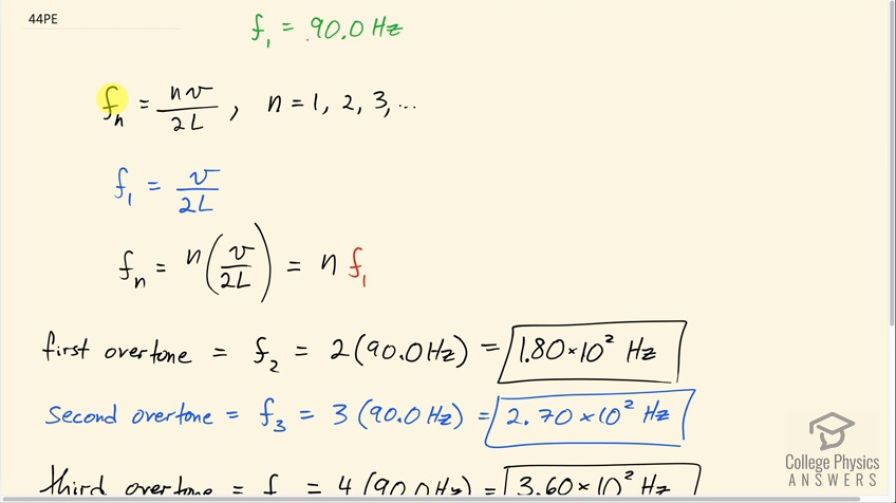 44PE
f₁ = 90.0 Hz
fₙ = nv/2L, n = 1, 2, 3, ...
f₁ = v/2L
fₙ = n(v/2L) = n f₁
first overtone = f₂ = 2(90.0 Hz) = 1.80×10² Hz
second overtone = f₃ = 3(90.0 Hz) = 2.70×10² Hz
third overtone = f = 4(90.0 Hz) = 3.60×10² Hz
College Physics
ANSWERS